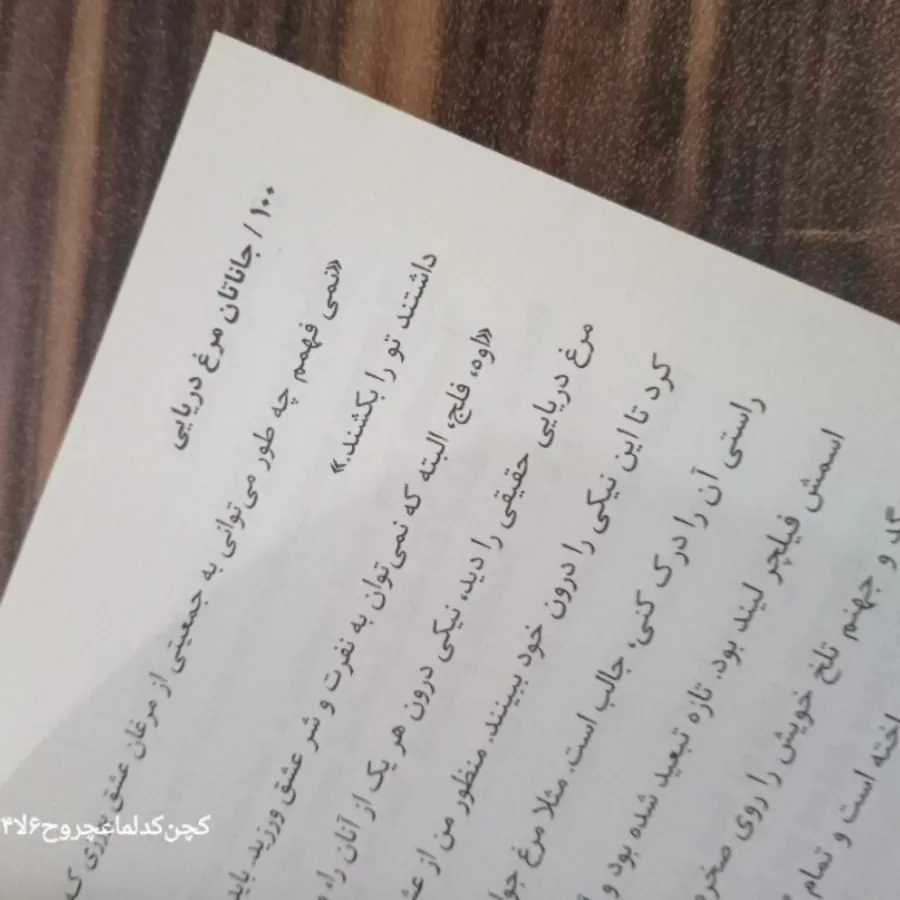 ۱۰۰ / جاناتان مرغ دریایی
«نمی فهمم چه طور می‌توانی به جمعیتی از مرغان عشق ک
داشتند تو را بکشند.»
«اوه، فلچ، البته که نمی‌توان به نفرت و شر عشق ورزید. باید
مرغ دریایی حقیقی را دید، نیکی درون هر یک از آنان را،
کرد تا این نیکی را درون خود ببینند. منظور من از عش
راستی آن را درک کنی، جالب است. مثلا مرغ جوا
اسمش فیلچر لیند بود. تازه تبعید شده بود و
گد و جهنم تلخ خویش را روی صخر
اخته است و تمام
کچن‌کدلماغچروح۴لا۶